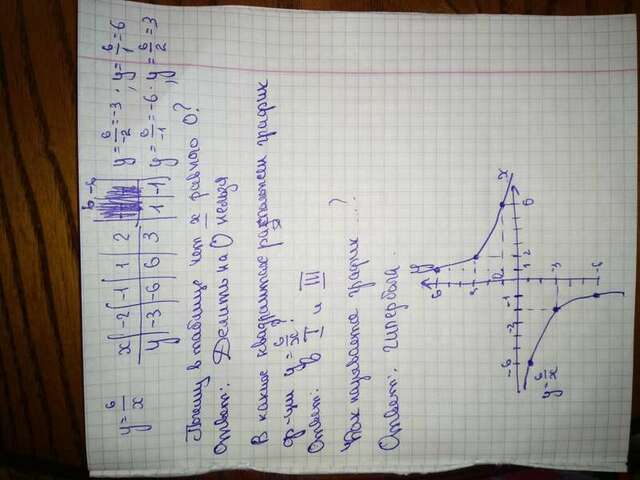 y = 6/x
x | -2 | -1 | 1 | 2 | 6 | -6
y | -3 | -6 | 6 | 3 | 1 | -1
y = 6/-2 = -3, y = 6/1 = 6
y = 6/-1 = -6, y = 6/2 = 3
Почему в таблице нет x равного 0?
Ответ: Делить на 0 нельзя
В каких квадрантах расположен график
ф-ции y = 6/x?
Ответ: В I и III
Как называется график ...?
Ответ: гипербола.
y
6
3
-6 -2 -1 0 1 2 6 x
-3
-6
y = 6/x